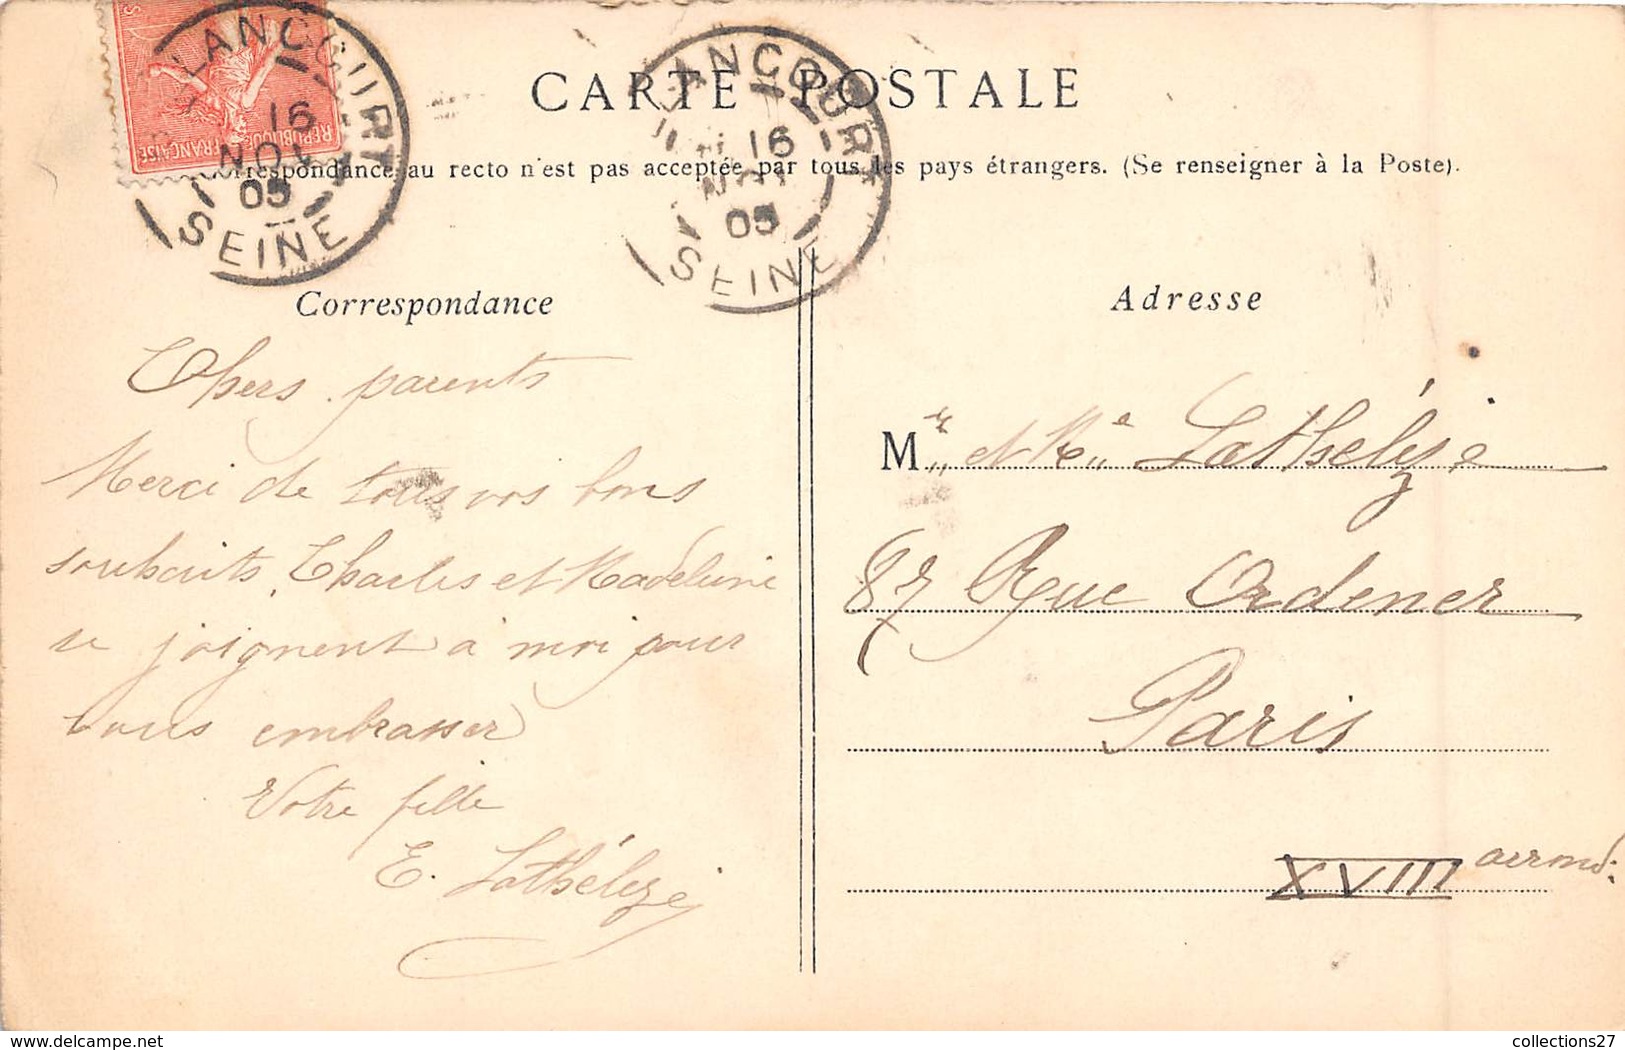 CARTE POSTALE
Correspondance au recto n'est pas acceptée par tous les pays étrangers. (Se renseigner à la Poste).
RÉPUBLIQUE FRANÇAISE
LANCOURT
16
NOV
05
SEINE
LANCOURT
16
NOV
05
SEINE
Correspondance
Chers parents
Merci de tous vos bons
souhaits, Charles et Madeleine
se joignent à moi pour
vous embrasser
Votre fille
E. Lathélize
Adresse
Mr et Me Lathélize
87 Rue Ordener
Paris
XVIII arrond:
collections27